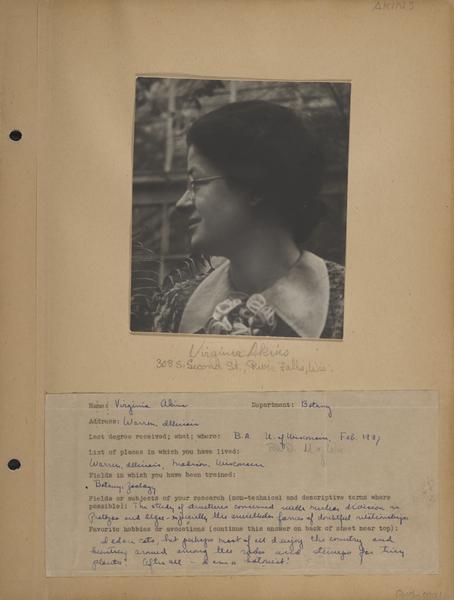 AKINS
Virginia Akins
308 S. Second St., River Falls, Wis.
Name: Virginia Akins Department: Botany
Address: Warren, Illinois
Last degree received; what; where: B.A. U. of Wisconsin, Feb.
Ph.D. U of Wis
List of places in which you have lived:
Warren, Illinois, Madison, Wisconsin
Fields in which you have been trained:
Botany, Zoology
Fields or subjects of your research (non-technical and descriptive terms where
possible): The study of structures concerned with nuclear division in
and algae especially the unicellular forms of doubtful relationships
Favorite hobbies or avocations (continue this answer on back of sheet near top):
cats, but perhaps most of all I enjoy the country and
hunting around among the and stumps for tiny
plants. After all - I am a botanist!